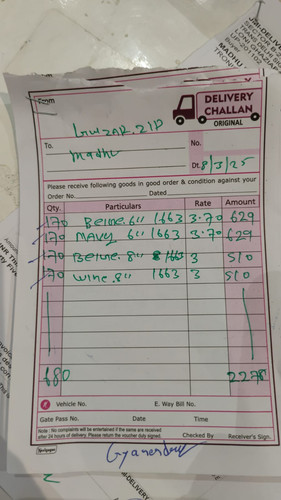 From
DELIVERY
CHALLAN
ORIGINAL
To,
Madhu
No.
Dt. 8/3/25
Please receive following goods in good order & condition against your
Order No. Dated
Qty. Particulars Rate Amount
170 6" 1663 3.70 629
170 NAVY 6" 1663 3.70 629
170 8" 1663 3 510
170 Wine 8" 1663 3 510
680 2278
Vehicle No. E. Way Bill No.
Gate Pass No. Date Time
Note : No complaints will be entertained if the same are received
after 24 hours of delivery. Please return the voucher duly signed.
Checked By Receiver's Sign.